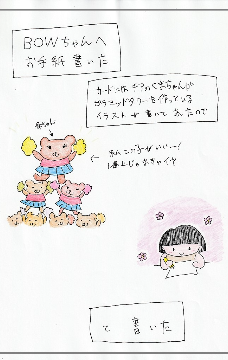 BOWちゃんへ
お手紙書いた
カードには チアのくまちゃんが
ピラミッドタワーを作っている
イラストが書いてあったので
私 この子がいい〜!
1番上じゃなきゃイヤ
と 書いた